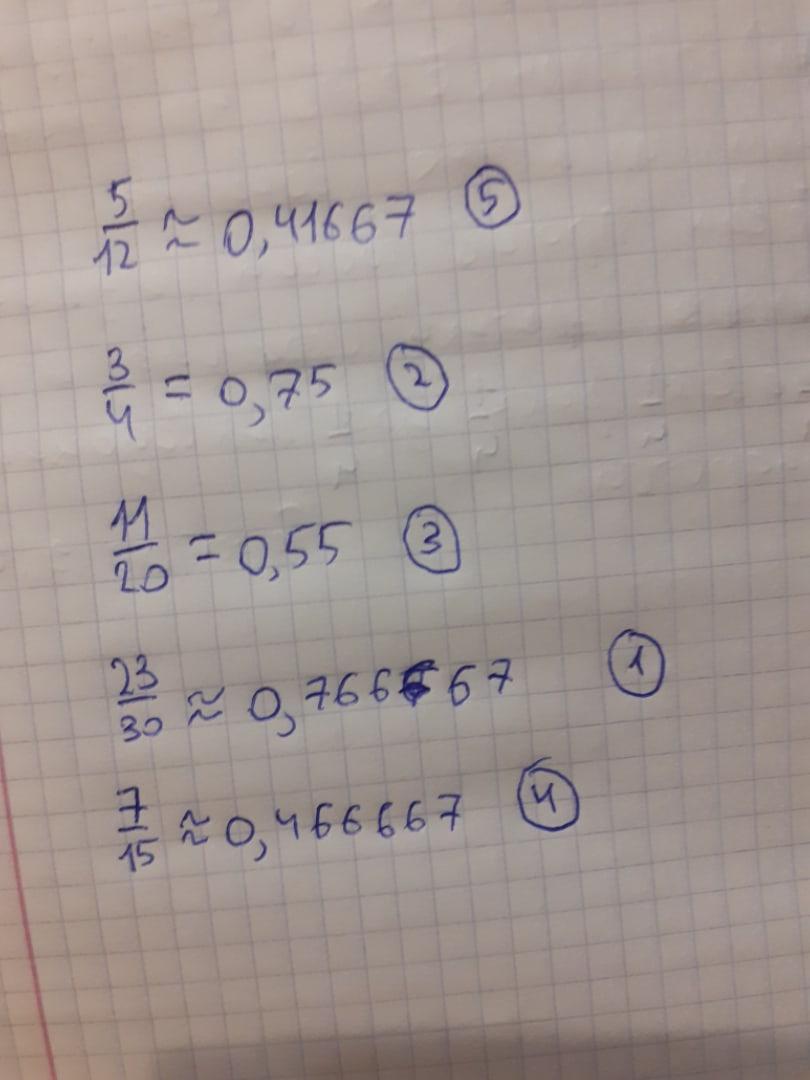 5/12 ≈ 0,41667 ⑤
3/4 = 0,75 ②
11/20 = 0,55 ③
23/30 ≈ 0,766667 ①
7/15 ≈ 0,466667 ④